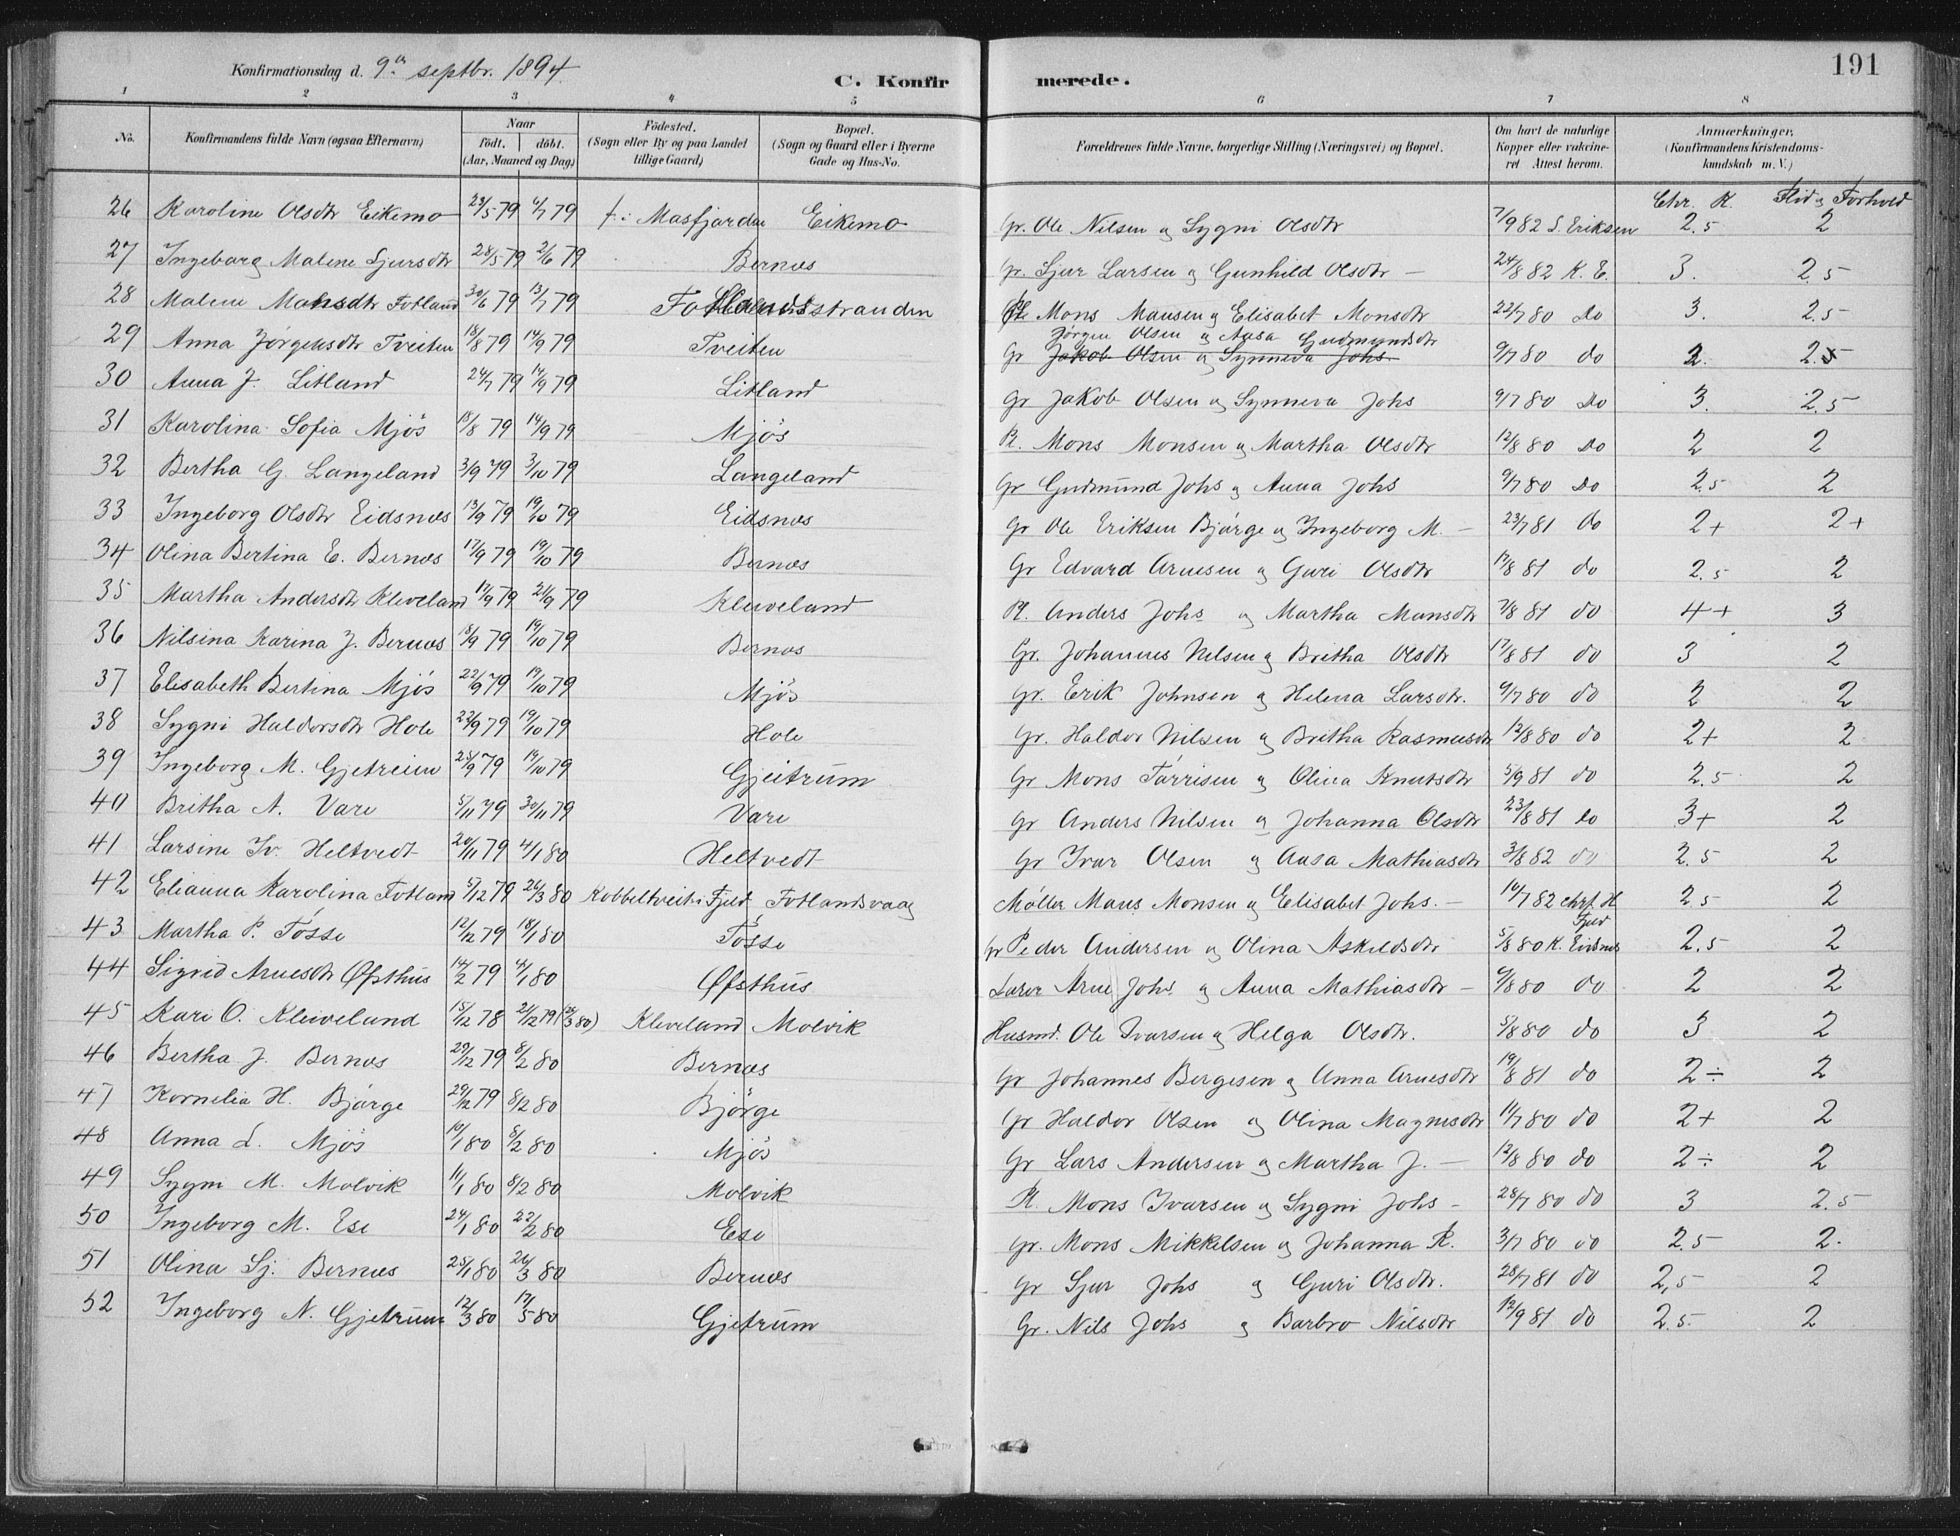 Konfirmationsdag d. 9de septbr. 1894.
C. Konfirmerede.
191
1 2 3 4 5 6 7 8
No.
Konfirmandens fulde Navn (ogsaa Efternavn)
Naar
födt. döbt.
(Aar, Maaned og Dag)
Födested.
(Sogn eller By og paa Landet tillige Gaard)
Bopæl.
(Sogn og Gaard eller i Byerne Gade og Hus-No.
Forældrenes fulde Navne, borgerlige Stilling (Næringsvei) og Bopæl.
Om havt de naturlige Kopper eller vakcineret. Attest herom.
Anmærkninger,
(Konfirmandens Kristendomskundskab m. V.)
Chr. K. Flid og Forhold
26 Karoline Olsdtr Eikemo 23/5 79 4/7 79 f. i Masfjorden Eikemo Gr. Ole Nilsen og Sygni Olsdtr 7/9 82 S. Eriksen 2.5 2
27 Ingeborg Malene Sjursdtr 28/5 79 2/6 79 Bernæs Gr. Sjur Larsen og Gunhild Olsdtr — 24/8 82 K. E. 3. 2.5
28 Malene Monsdtr Fotland 30/6 79 13/7 79 Fotlandsstranden Mons Mansen og Elisabet Monsdtr 22/7 80 Do 3. 2.5
29 Anna Jørgensdtr Tveiten 18/8 79 14/9 79 Tveiten Gr Jørgen Olsen og Aasa Gudmundsdtr Jakob Olsen og Synneva Johs 9/7 80 do 2. 2.5
30 Anna J. Litland 24/7 79 14/9 79 Litland Gr Jakob Olsen og Synneva Johs 9/7 80 Do 3. 2.5
31 Karolina Sofia Mjøs 18/8 79 14/9 79 Mjøs Pl. Mons Monsen og Martha Olsdtr 12/8 80 Do 2 2
32 Bertha G. Langeland 3/9 79 3/10 79 Langeland Gr Gudmund Johs og Anna Johs 9/7 80 Do 2.5 2
33 Ingeborg Olsdtr Eidsnæs 13/9 79 19/10 79 Eidsnæs Gr Ole Eriksen Bjørge og Ingeborg M. — 23/7 81 do 2+ 2+
34 Olina Bertina E. Bernæs 17/9 79 19/10 79 Bernæs Gr Edvard Arnesen og Guri Olsdtr 17/8 81 do 2.5 2
35 Martha Andersdtr Kleveland 17/9 79 21/9 79 Kleveland Pl. Anders Johs og Martha Monsdtr 7/8 81 do 4+ 3
36 Nilsina Karina J. Bernæs 18/9 79 19/10 79 Bernæs Gr. Johannes Nilsen og Britha Olsdtr 17/8 81 do 3 2
37 Elisabeth Bertina Mjøs 22/9 79 19/10 79 Mjøs Gr. Erik Johnsen og Helena Larsdtr. 9/7 80 do 2 2
38 Sygni Haldorsdtr Hole 22/9 79 19/10 79 Hole Gr. Haldor Nilsen og Britha Rasmusdtr 12/8 80 do 2+ 2
39 Ingeborg M. Gjetreim 25/9 79 19/10 79 Gjeitrum Gr Mons Tørrisen og Olina Knutsdtr 5/9 81 do 2.5 2
40 Britha A. Vare 5/11 79 30/11 79 Vare Gr Anders Nilsen og Johanna Olsdtr 23/8 81 do 3+ 2
41 Larsine Iv. Heltvedt 20/11 79 4/1 80 Heltvedt Gr Ivar Olsen og Aasa Mathiasdtr 3/8 82 do 2.5 2
42 Elianna Karolina Fotland 5/12 79 26/3 80 Kobbeltveit i Fjeld Fotlandsvaag Møller Mans Monsen og Elisabet Johs. — 14/7 82 chrf. H Fjeld 2.5 2
43 Martha P. Tøsse 12/12 79 18/1 80 Tøsse Gr Peder Andersen og Olina Askildsdtr 5/8 80 K. Eidsnes 2.5 2
44 Sigrid Arnesdtr Øfsthus 14/2 79 4/1 80 Øfsthus Lærer Arne Johs og Anna Mathiasdtr — 9/8 80 do 2 2
45 Kari O. Kleiveland 15/12 78 21/12 79 (26/3 80) Kleveland Molvik Husmd. Ole Ivarsen og Helga Olsdtr. 5/8 80 do 3 2
46 Bertha J. Bernæs 29/12 79 8/2 80 Bernæs Gr Johannes Bergesen og Anna Arnesdtr 19/8 81 do 2÷ 2
47 Kornelia H. Bjørge 29/12 79 8/2 80 Bjørge Gr Haldor Olsen og Olina Magnesdtr 11/7 80 do 2+ 2
48 Anna L. Mjøs 10/1 80 8/2 80 Mjøs Gr Lars Andersen og Martha J. — 12/8 80 do 2÷ 2
49 Sygni M. Molvik 11/1 80 8/2 80 Molvik Pl. Mons Ivarsen og Sygni Johs - 28/7 80 do 3 2.5
50 Ingeborg M. Ese 24/1 80 22/2 80 Ese Gr. Mons Mikkelsen og Johanna K. 3/7 80 do 2.5 2.
51 Olina Sj. Bernæs 25/1 80 26/3 80 Bernæs Gr Sjur Johs og Guri Olsdtr. 28/7 81 do 2,5 2
52 Ingeborg N. Gjetrum 12/3 80 17/5 80 Gjetrum Gr. Nils Johs og Barbro Nilsdtr 12/9 81 do 2.5 2